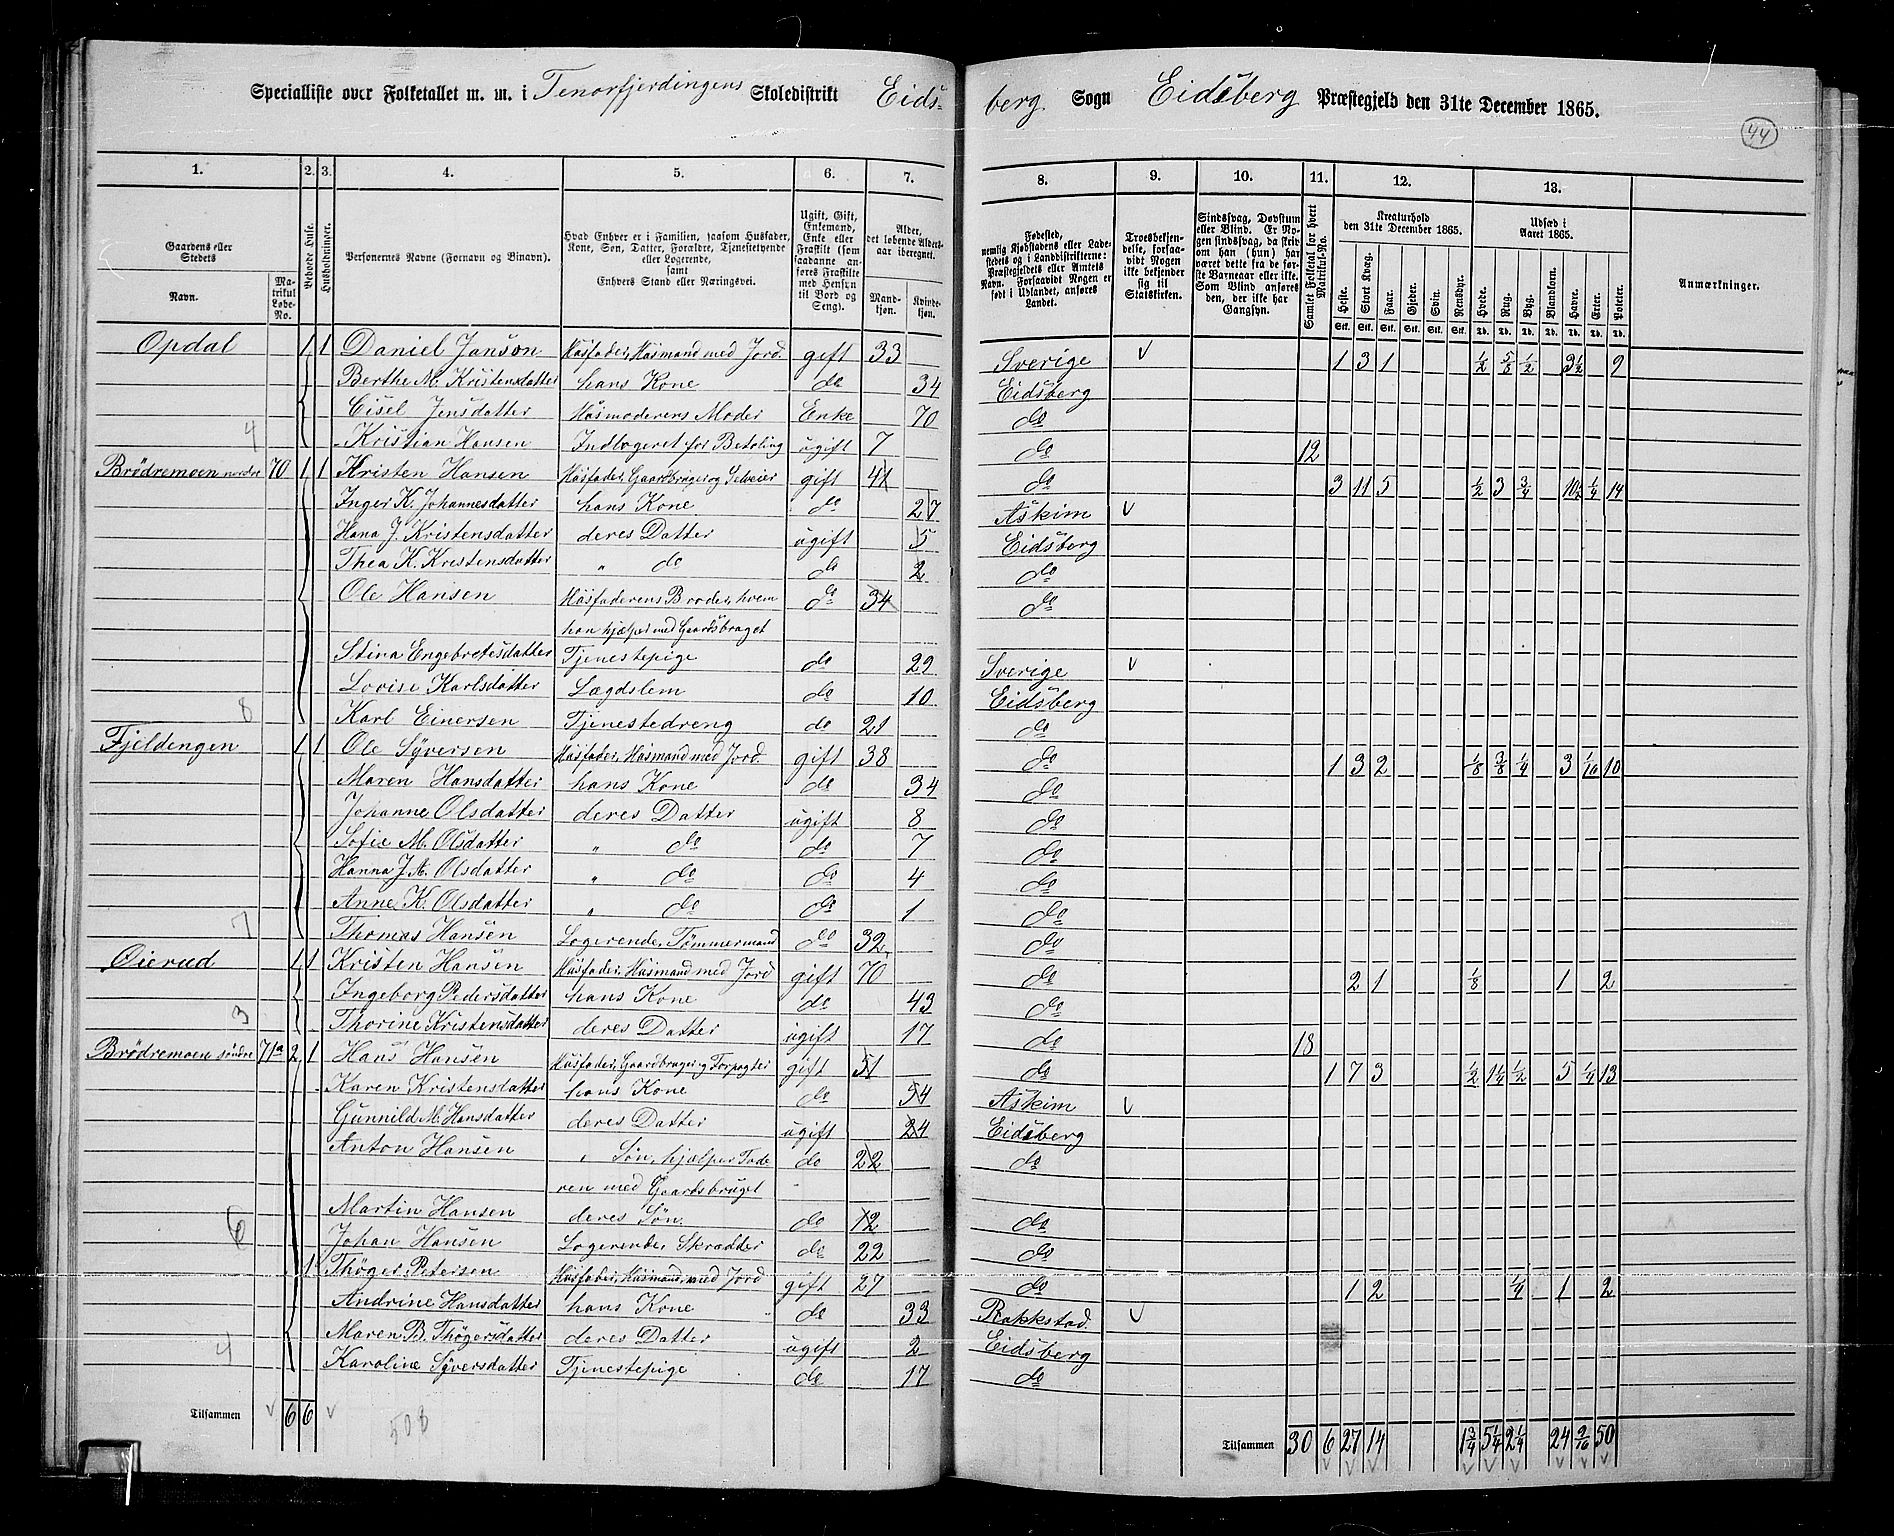 Specialliste over Folketallet m. m. i Tenorfjerdingens Skoledistrikt Eids-
berg Sogn Eidsberg Præstegjeld den 31te December 1865.
44
1. 2. 3. 4. 5. 6. 7.
8. 9. 10. 11. 12. 13.
Gaardens eller Stedets
Navn.
Matrikul Løbe-No.
Bebvoede Huse.
Husholdninger.
Personernes Navne (Fornavn og Binavn).
Hvad Enhver er i Familien, saasom Husfader, Kone, Søn, Datter, Forældre, Tjenestetyende eller Logerende, samt Enhvers Stand eller Næringsvei.
Ugift, Gift, Enkemand, Enke eller Fraskilt (som saadanne anføres Fraskilte med Hensyn til Bord og Seng).
Alder, det løbende Aldersaar iberegnet.
Mandkjøn. Kvindekjøn.
Fødested, nemlig Kjøbstadens eller Ladestedets og i Landdistrikterne: Præstegjeldets eller Amtets Navn. Forsaavidt Nogen er født i Udlandet, anføres Landet.
Troesbekjendelse, forsaavidt Nogen ikke bekjender sig til Statskirken.
Sindssvag, Døvstum eller Blind. Er Nogen sindssvag, da skrives om han (hun) har været dette fra de første Barneaar eller ikke. Som Blind anføres den, der ikke har Gangsyn.
Samlet Folketal for hvert Matrikul-No.
Kreaturhold den 31te December 1865.
Heste. Stort Kvæg. Faar. Gjeder. Svin. Rensdyr.
Udsæd i Aaret 1865.
Hvede. Rug. Byg. Blandkorn. Havre. Erter. Poteter.
Anmærkninger.
Opdal 1 1 Daniel Janson Husfader, Husmand med Jord. gift 33 Sverige v 1 3 1 ½ ⅝ ½ 3½ 9
Berthe M. Kristensdatter hans Kone do 34 Eidsberg
Cisel Jensdatter Husmoderens Moder Enke 70 do
4 Kristian Hansen Indlogeret for Betaling ugift 7 do 12
Brödremoen nordre 70 1 1 Kristen Hansen Husfader, Gaardbruger og Selveier gift 41 do 3 11 5 ½ 3 ¾ 10½ ¼ 14
Inger K. Johannesdatter hans Kone do 27 Askim v
Hana J. Kristensdatter deres Datter ugift 5 Eidsberg
Thea K. Kristensdatter " do do 2 do
Ole Hansen Husfaderens Broder, hvem do 34 do
han hjælper med Gaardsbruget
Stina Engebretesdatter Tjenestepige do 29 Sverige v
Lovise Karlsdatter Lægdslem do 10 Eidsberg
8 Karl Einersen Tjenestedreng do 21 do
Fjeldengen 1 1 Ole Syversen Husfader, Husmand med Jord. gift 38 do 1 3 2 ⅛ ⅜ ¼ 3 1/16 10
Maren Hansdatter hans Kone do 34 do
Johanne Olsdatter deres Datter ugift 8 do
Sofie M. Olsdatter " do do 7 do
Hanna J. M. Olsdatter " do do 4 do
Anne K. Olsdatter " do do 1 do
7 Thomas Hansen Logerende, Tømmermand do 32 do
Öierud 1 1 Kristen Hansen Husfader, Husmand med Jord gift 70 do 2 1 ⅛ 1 2
Ingeborg Pedersdatter hans Kone do 43 do
3 Thorine Kristensdatter deres Datter ugift 17 do 18
Brödremoen søndre 71a 2 1 Hans Hansen Husfader, Gaardbruger og Forpagter gift 51 do 1 7 3 ½ 1¼ ½ 5 ¼ 13
Karen Kristensdatter hans Kone do 54 Askim v
Gunnild M. Hansdatter deres Datter ugift 24 Eidsberg
Anton Hansen " Søn, hjælper Fade do 22 do
ren med Gaardsbruget
Martin Hansen deres Søn. do 12 do
6 Johan Hansen Logerende, Skrædder do 22 do
1 Thöger Petersen Husfader, Husmand med Jord gift 27 do 1 2 ¼ 1 2
Andrine Hansdatter hans Kone do 33 Rakkestad. v
Maren B. Thögersdatter deres Datter ugift 2 Eidsberg
4 Karoline Syversdatter Tjenestepige do 17 do
Tilsammen v 6 6 v 508
Tilsammen 30 6 27 14 1¾ 5¼ 2¼ 24 9/16 50
v v v v v v v v v